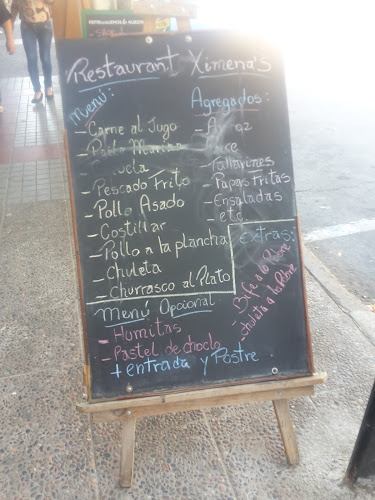 Restaurant Ximena's
Menú:
- Carne al Jugo
- Pescado Frito
- Pollo Asado
- Costillar
- Pollo a la plancha
- Chuleta
- Churrasco al Plato
Agregados:
- Tallarines
- Papas Fritas
- Ensaladas
- etc
extras:
- Bife a lo Pobre
- chuleta a lo Pobre
Menú Opcional
- Humitas
- Pastel de choclo
+ entrada y Postre